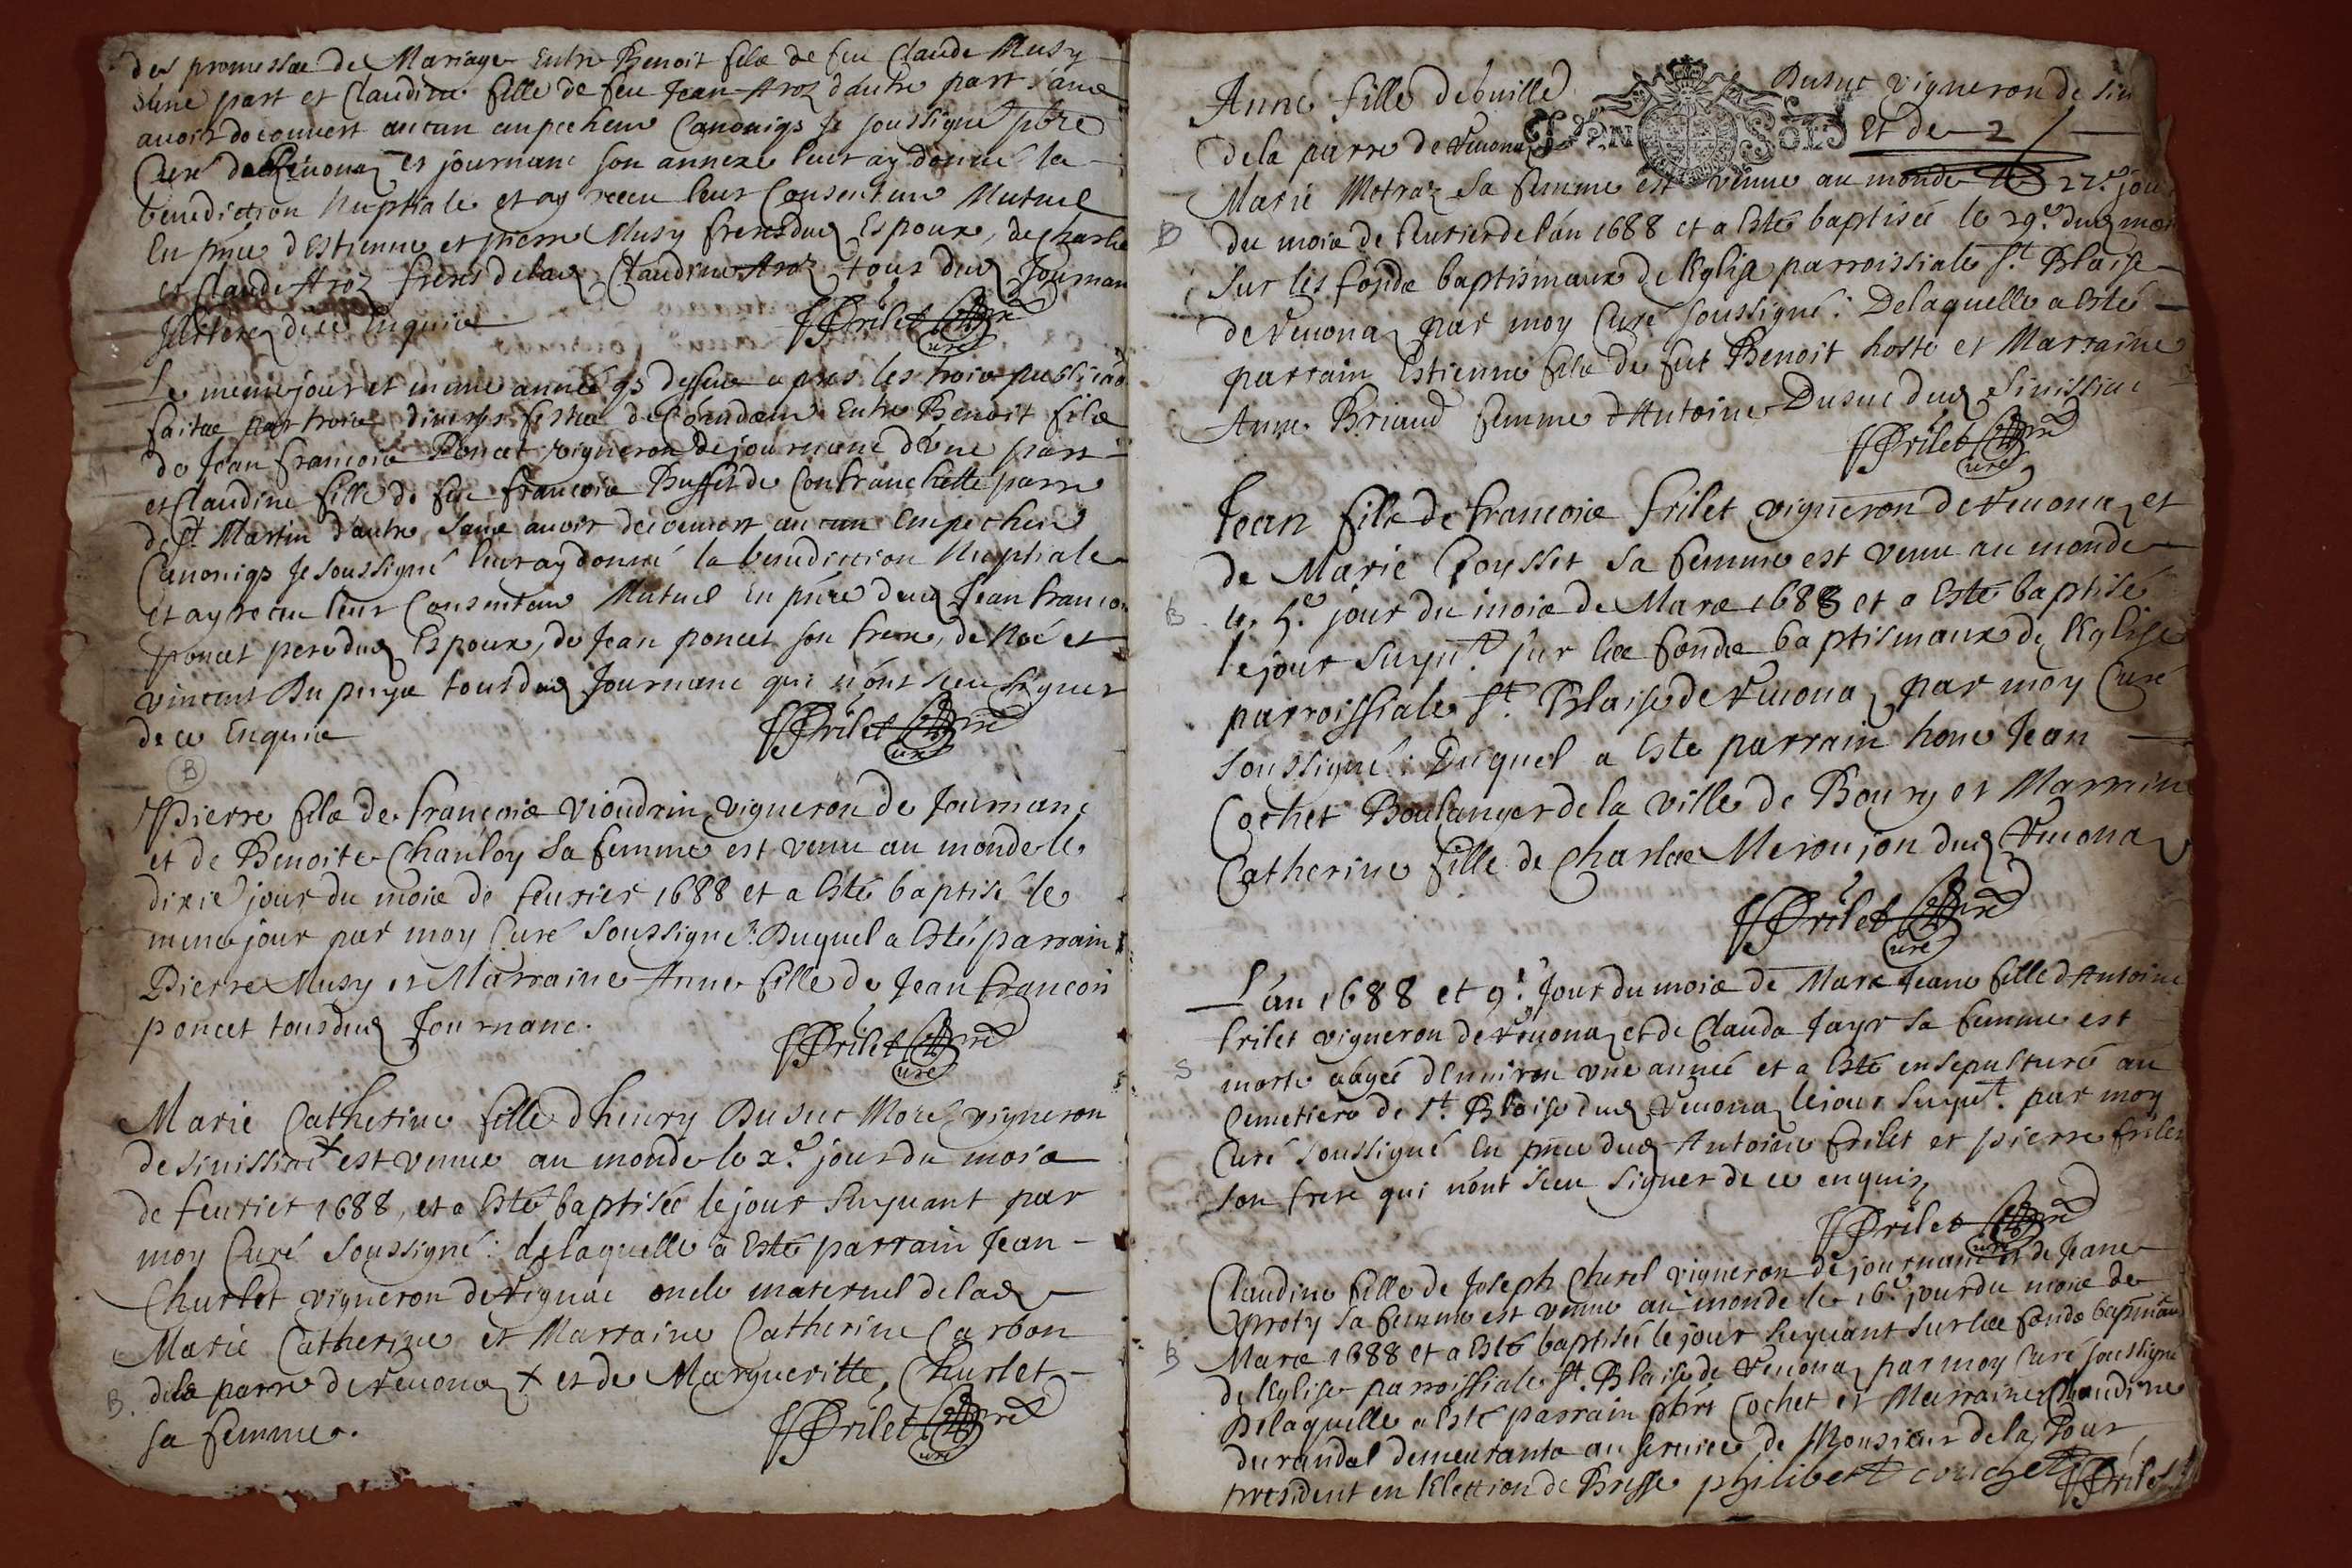 des promesses de Mariage Entre Benoit fils de feu Claude Musy
d'une part et Claudine fille de feu Jean Aroz d'autre part sans
avoir decouvert aucun empechem Canoniqs Je soussigné pbre
Curé de Revona et journanc son annexe leur ay donné la
benediction Nuptiale et ay receu leur Consentem Mutuel
En pnce d'Estienne et pierre Musy freres dud Espoux, de Charle
et Claude Aroz freres delad Claudine Aroz tous dud Journan
Illiteres de ce Enquis
FFrilet pbre
curé
Le meme jour et meme année qs dessus apres les trois publicaõ
faites par trois divers festes de Comdam Entre Benoit fils
de Jean francois Poncet vigneron de journanc d'une part
et Claudine fille de feu francois Buffet de Confranchette parre
de St Martin d'autre sans avoir decouvert aucun Empechem
Canoniqs Je soussigné leur ay donné la benediction Nuptiale
et ay receu leur Consentem Mutuel en pnce dud Jean francois
poncet pere dud Espoux, de Jean poncet son frere, de Noé et
vincent Dupuys tous dud Journanc qui n'ont sceu signer
de ce Enquis
FFrilet pbre
curé
B
Pierre fils de francois vioudrin vigneron de Journanc
et de Benoite Chanloy sa femme est venu au monde le
dixie jour du mois de feurier 1688 et a Esté baptisé le
meme jour par moy Curé soussigné. Duquel a Esté parrain
Pierre Musy et Marraine Anne fille de Jean francois
poncet tous dud Journanc.
FFrilet pbre
curé
Marie Catherine fille d'henry Dusuc Morel vigneron
de sinissiat + est venue au monde le 2e jour du mois
de feurier 1688, et a Esté baptisée le jour suyuant par
moy Curé soussigné: delaquelle a Esté parrain Jean
Churlet vigneron de Rignac oncle maternel de lad
Marie Catherine et Marraine Catherine Carbon
B. dela parre de Reuona + et de Margueritte Churlet
sa femme.
FFrilet pbre
curé
Anne fille de Guilld Dusuc vigneron de sin
SOLS Et de 2
dela parre de Reuona
Marie Metraz sa femme est venue au monde le 27e jour
B du mois de feurier de l'an 1688 et a Esté baptisée le 29e dud mois
sur les fonds baptismaux de l'Eglise parroissiale St Blaise
de Reuona par moy Curé soussigné: Delaquelle a Esté
parrain Estienne fils de fut Benoit hoste et Marraine
Anne Briand femme d'Antoine Dusuc dud sinissiac
FFrilet pbre
curé
Jean fils de francois frilet vigneron de Reuona et
de Marie Cousset sa femme est venu au monde
B le 5e jour du mois de Mars 1688 et a Esté baptisé
le jour suyut sur les fonds baptismaux de l'Eglise
parroissiale St Blaise de Reuona par moy Curé
soussigné: Duquel a Esté parrain hone Jean
Cochet Boulanger de la ville de Bourg et Marraine
Catherine fille de Charles Meroujon dud Reuona
FFrilet pbre
curé
L'an 1688 et 9e Jour du mois de Mars Jeane fille d'Antoine
frilet vigneron de Reuona et de Clauda Jayr sa femme est
S morte aagée d'enuiron une année et a Esté ensepulturé au
Cemetiere de St Blaise dud Reuona le jour suyut par moy
Curé soussigné En pnce dud Antoine frilet et pierre frilet
son frere qui n'ont sceu signer de ce enquis
FFrilet pbre
curé
Claudine fille de Joseph Churel vigneron de journanc et de Jeane
proty sa femme est venue au monde le 16e jour du mois de
B Mars 1688 et a Esté baptisée le jour suyuant sur les fonds baptismaux
de l'Eglise parroissiale St Blaise de Reuona par moy Curé soussigné
Delaquelle a Esté parrain phirt Cochet et Marraine Claudine
durandal demeurants au seruice de Monsieur de la Tour
president en l'Election de Bresse philibert couchet FFrilet